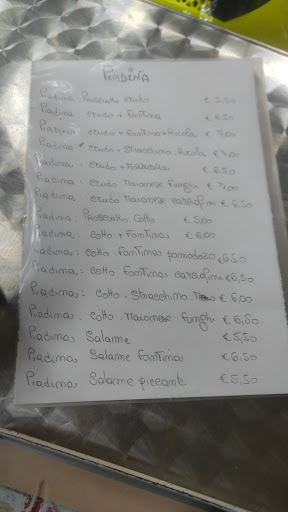 Piadina
Piadina Prosciutto crudo € 5,50
Piadina crudo + Fontina € 6,50
Piadina crudo + Fontina + Rucola € 7,00
Piadina crudo + Stracchino Rucola € 7,00
Piadina: crudo + € 6,50
Piadina: crudo Maionese Funghi € 7,00
Piadina crudo Maionese carciofini € 6,50
Piadina: Prosciutto Cotto € 5,00
Piadina: cotto + Fontina € 6,00
Piadina: cotto Fontina pomodoro € 6,50
Piadina: cotto Fontina carciofini € 6,50
Piadina: cotto Stracchino € 6,00
Piadina: cotto Maionese Funghi € 6,50
Piadina Salame € 5,50
Piadina Salame fontina € 6,50
Piadina Salame piccante € 5,50